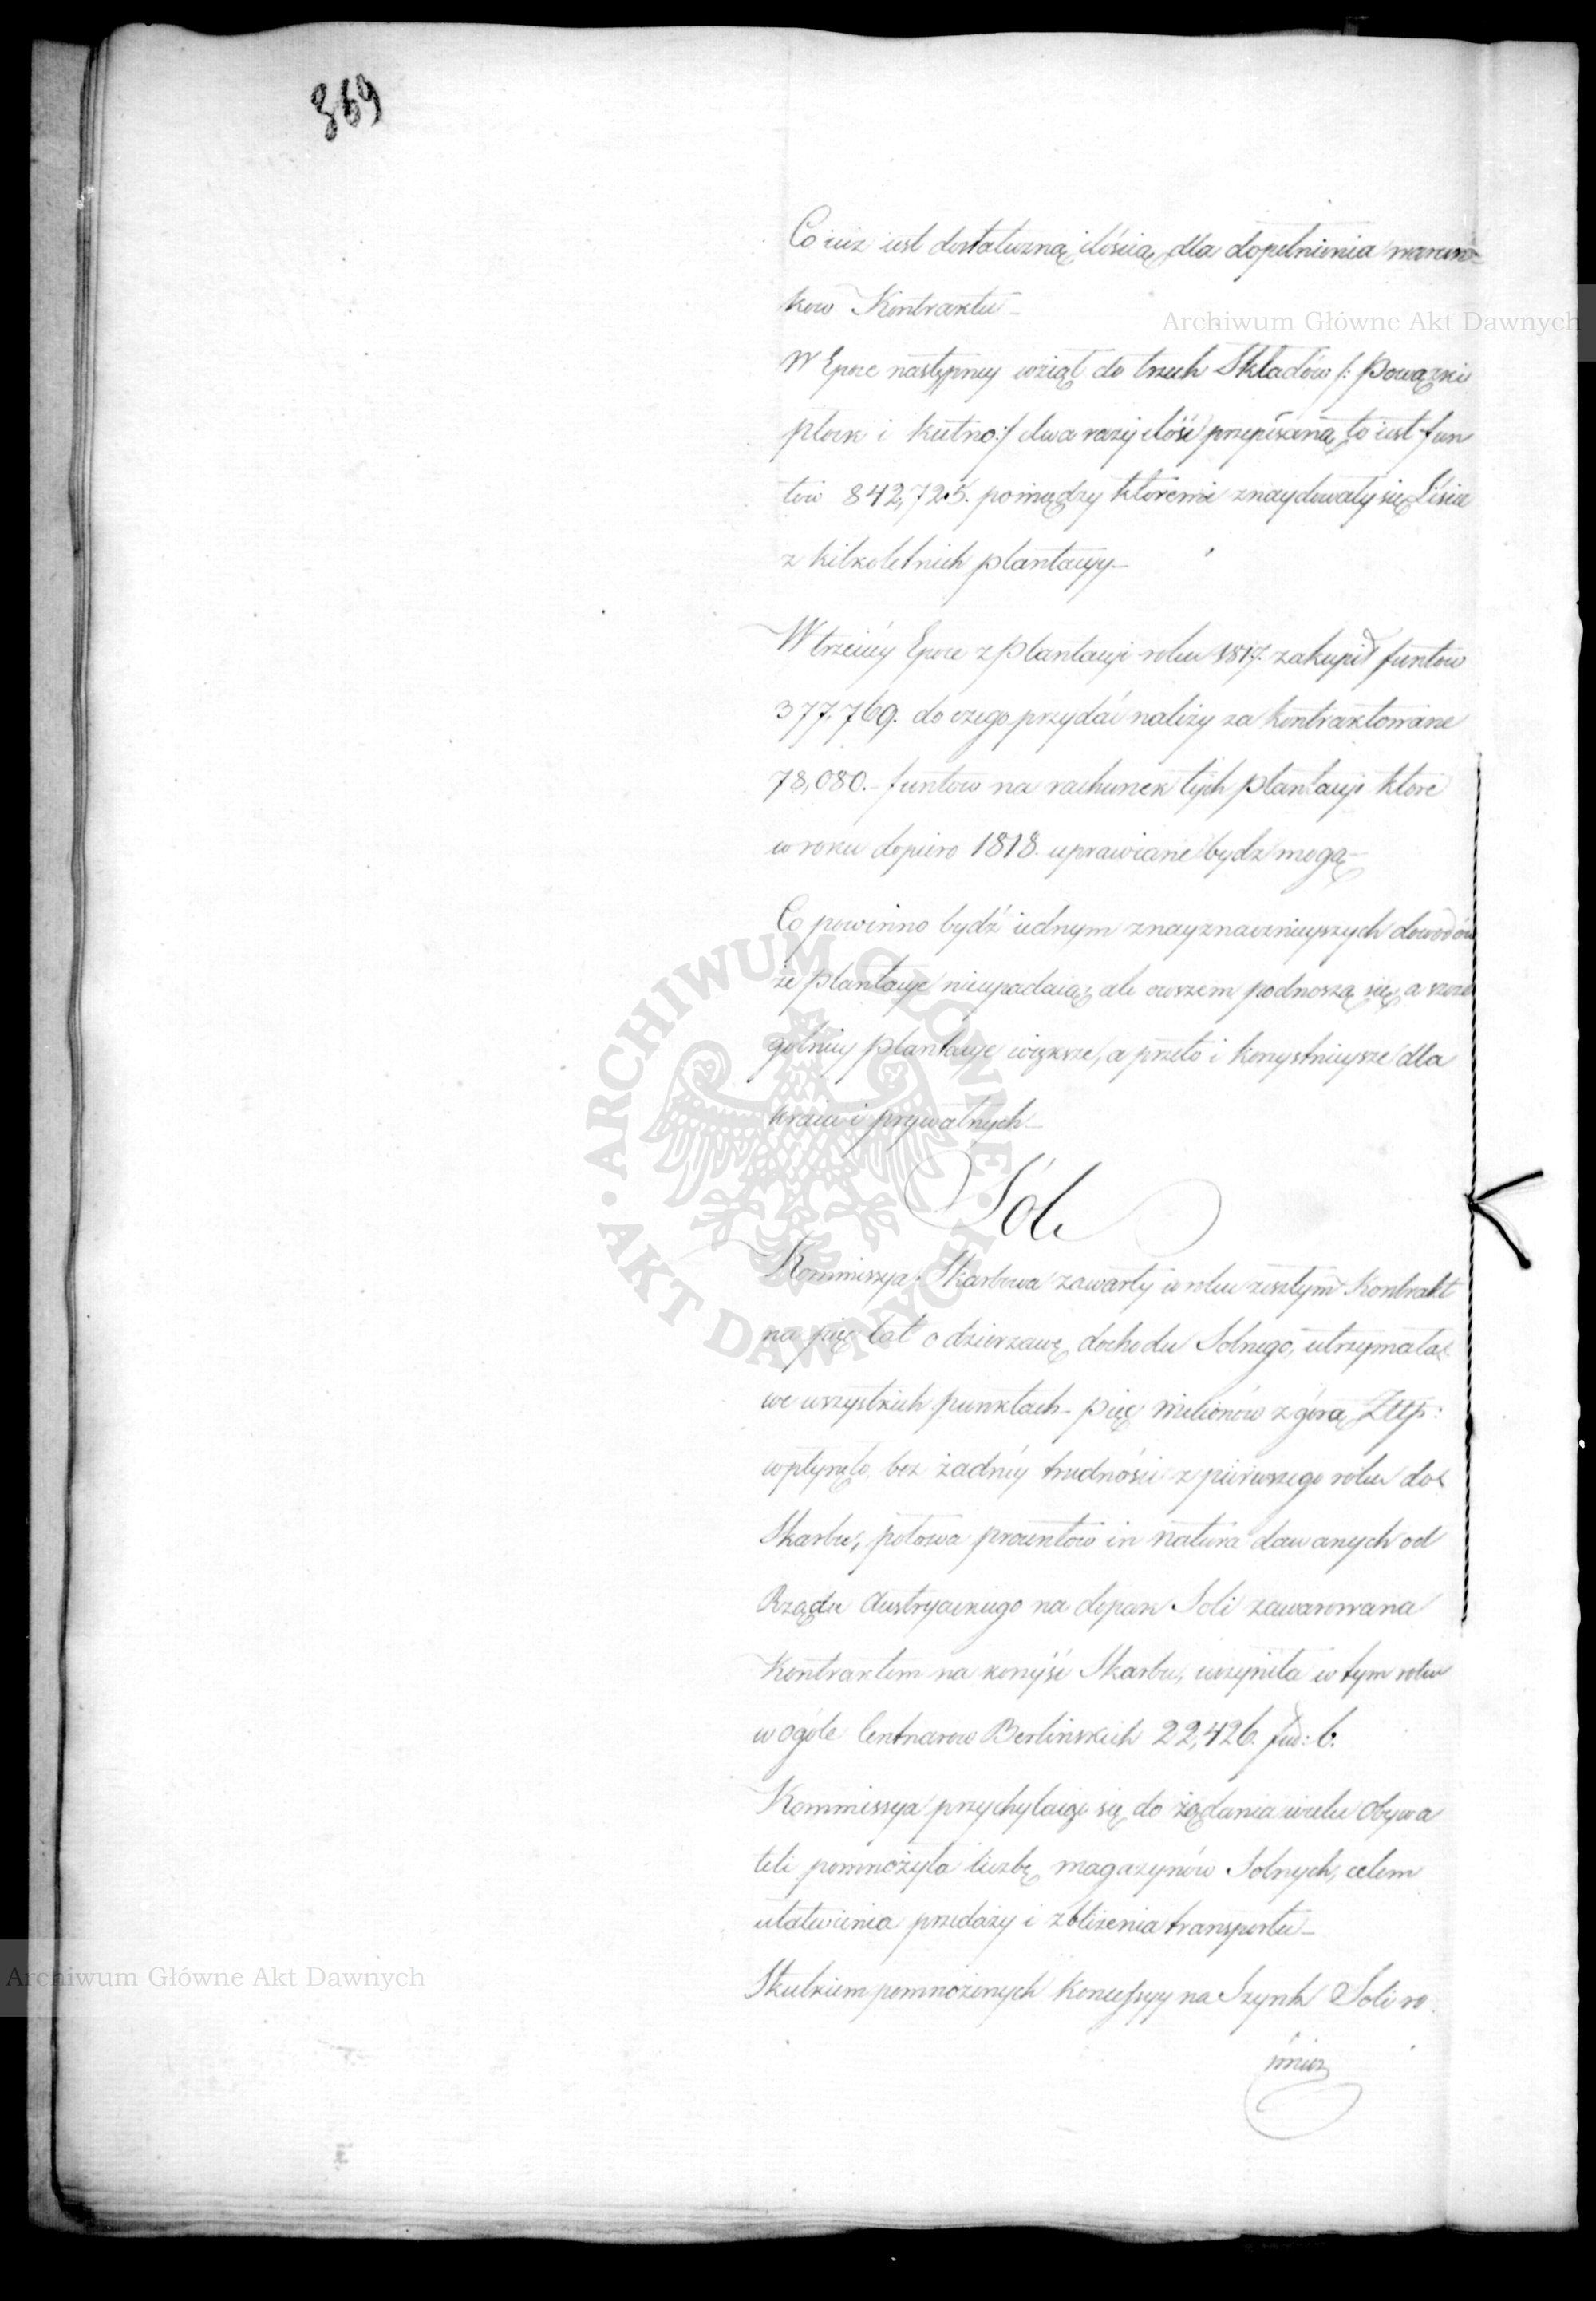 369
Co iuż iest dostateczną ilością dla dopełnienia warun-
kow Kontraktu -
Archiwum Główne Akt Dawnych
W Epoce następney wziął do trzech Składów /: Powązki
płock i kutno:/ dwa razy ilość przepisaną to iest fun
tów 842,725. pomiędzy ktoremi znaydowały się Liście
z kilkoletnich plantacyy -
W trzeciey Epoce z plantacyi roku 1817. zakupił funtow
377,769. do czego przydać należy za kontraktowane
78,080. - funtow na rachunek tych plantacyi ktore
w roku dopiero 1818. uprawiane bydz mogą -
Co powinno bydź iednym znayznacznieyszych dowodów
że plantacye nieupadaią, ale owszem podnoszą się, a szcze
gólniey plantacye większe, a przeto i korzystnieysze dla
kraiu i prywatnych -
ARCHIWUM GŁÓWNE · AKT DAWNYCH ·
Sól
Kommissya Skarbowa zawarty w roku zeszłym Kontrakt
na pięć lat o dzierzawę dochodu Solnego, utrzymała
we wszystkich punktach - pięć Milionów z górą Złłp:
wpłynęło, bez żadney trudności z pierwszego roku do
Skarbu, połowa procentów in natura dawanych od
Rządu Austryackiego na dopak Soli zawarowana
Kontraktem na korzyść Skarbu, uczyniła w tym roku
w ogóle Centnarow Berlinskich 22,426. fud: 6.
Kommissya przychylaiąc się do żądania wielu Obywa
teli pomnożyła liczbę magazynów Solnych, celem
ułatwienia przedaży i zbliżenia transportu -
Archiwum Główne Akt Dawnych
Skutkiem pomnożonych Koncessyy na Szynk Soli ro
wniez